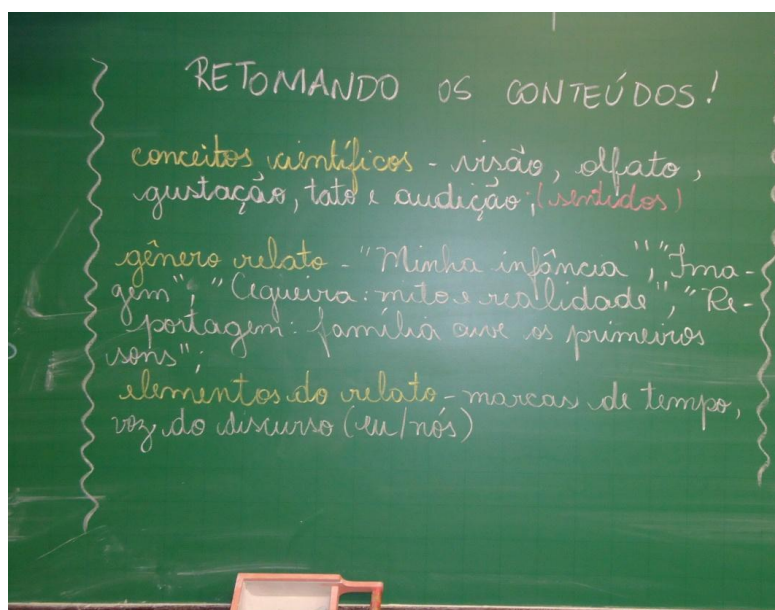 RETOMANDO OS CONTEÚDOS!
conceitos científicos - visão, olfato,
gustação, tato e audição; (sentidos)
gênero relato - "Minha infância", "Ima-
gem", "Cegueira: mito e realidade", "Re-
portagem: família ouve os primeiros
sons";
elementos do relato - marcas de tempo,
voz do discurso (eu/nós)